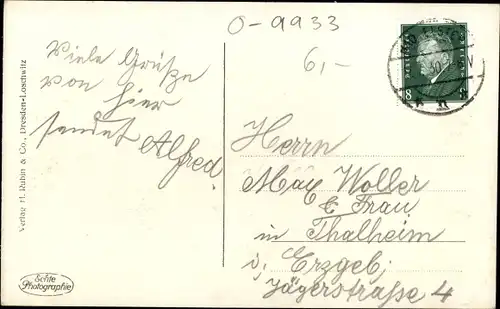 O-9933
6,-
Viele Grüße
von hier
sendet
Alfred.
Herrn
Max Woller
& Frau
in Thalheim
i, Erzgeb,
Jägerstraße 4
Verlag H. Rubin & Co., Dresden-Loschwitz
Echte
Photographie
8 8